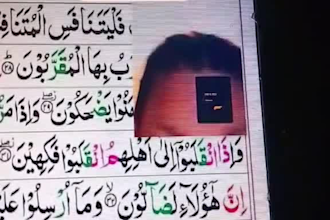 فَلْيَتَنَافَسِ الْمُتَنَافِ
رَبُ بِهَا الْمُقَرَّبُوْنَ
نُوْا يَضْحَكُوْنَ ۲۹ وَاِذَا مَرُّ
وَاِذَا انْقَلَبُوْۤا اِلٰۤى اَهْلِهِمُ انْقَلَبُوْا فَكِهِيْنَ ۳۱
اِنَّ هٰۤؤُلَآءِ لَضَآلُّوْنَ ۳۲ وَمَاۤ اُرْسِلُوْا عَلَ